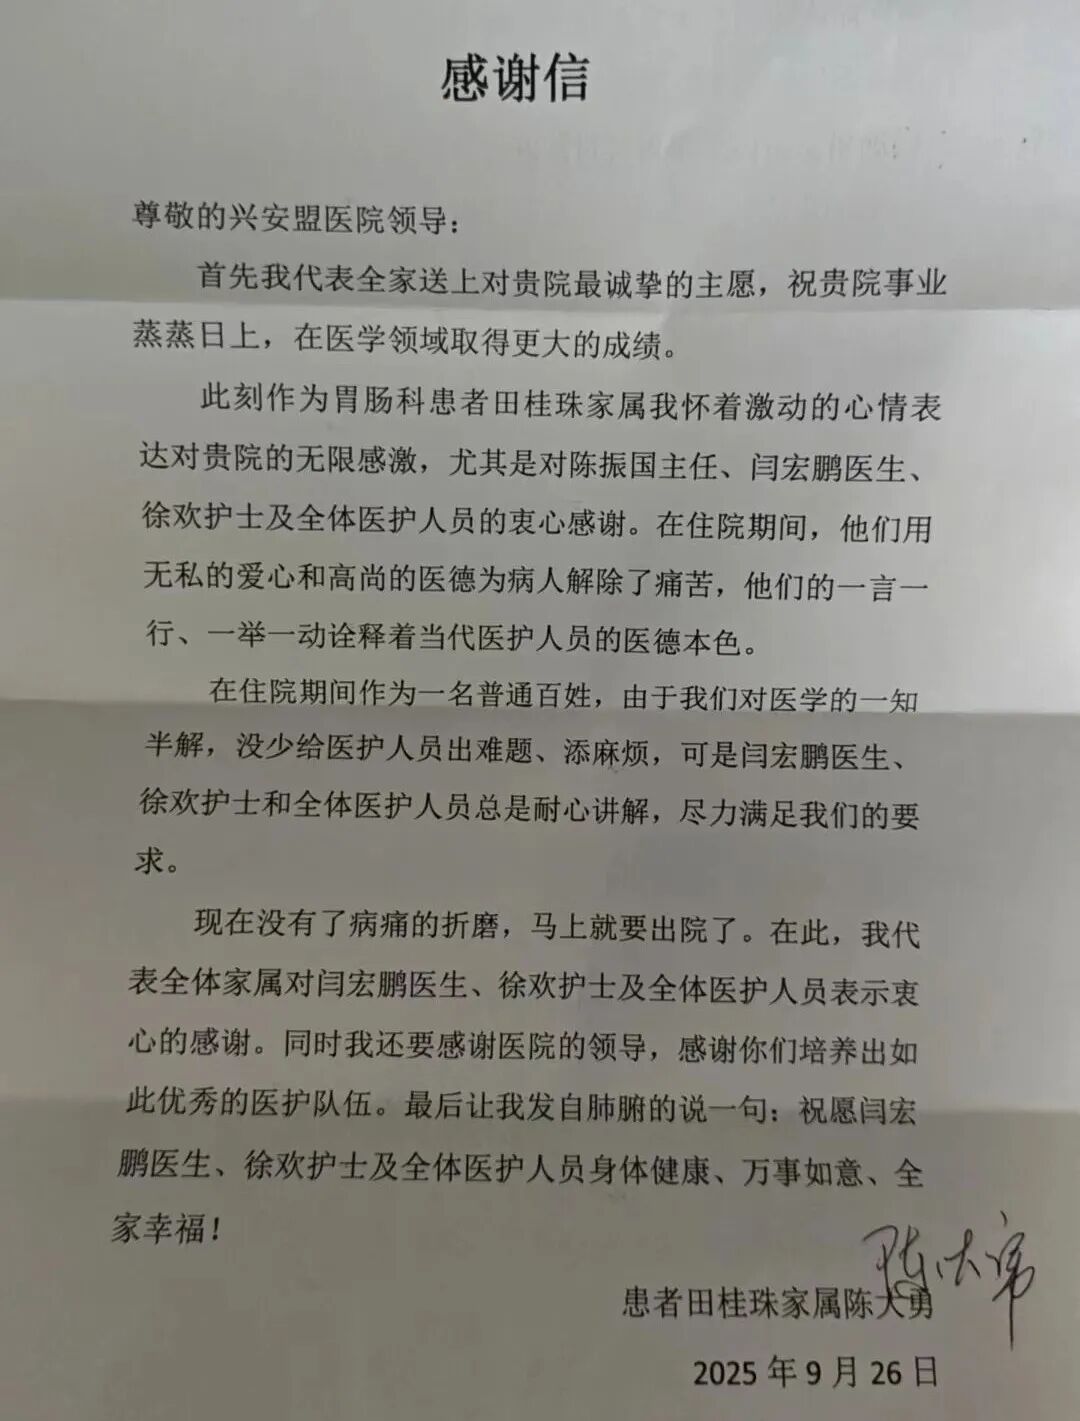 感谢信
尊敬的兴安盟医院领导：
首先我代表全家送上对贵院最诚挚的主愿，祝贵院事业
蒸蒸日上，在医学领域取得更大的成绩。
此刻作为胃肠科患者田桂珠家属我怀着激动的心情表
达对贵院的无限感激，尤其是对陈振国主任、闫宏鹏医生、
徐欢护士及全体医护人员的衷心感谢。在住院期间，他们用
无私的爱心和高尚的医德为病人解除了痛苦，他们的一言一
行、一举一动诠释着当代医护人员的医德本色。
在住院期间作为一名普通百姓，由于我们对医学的一知
半解，没少给医护人员出难题、添麻烦，可是闫宏鹏医生、
徐欢护士和全体医护人员总是耐心讲解，尽力满足我们的要
求。
现在没有了病痛的折磨，马上就要出院了。在此，我代
表全体家属对闫宏鹏医生、徐欢护士及全体医护人员表示衷
心的感谢。同时我还要感谢医院的领导，感谢你们培养出如
此优秀的医护队伍。最后让我发自肺腑的说一句：祝愿闫宏
鹏医生、徐欢护士及全体医护人员身体健康、万事如意、全
家幸福！
陈大勇
患者田桂珠家属陈大勇
2025 年 9 月 26 日